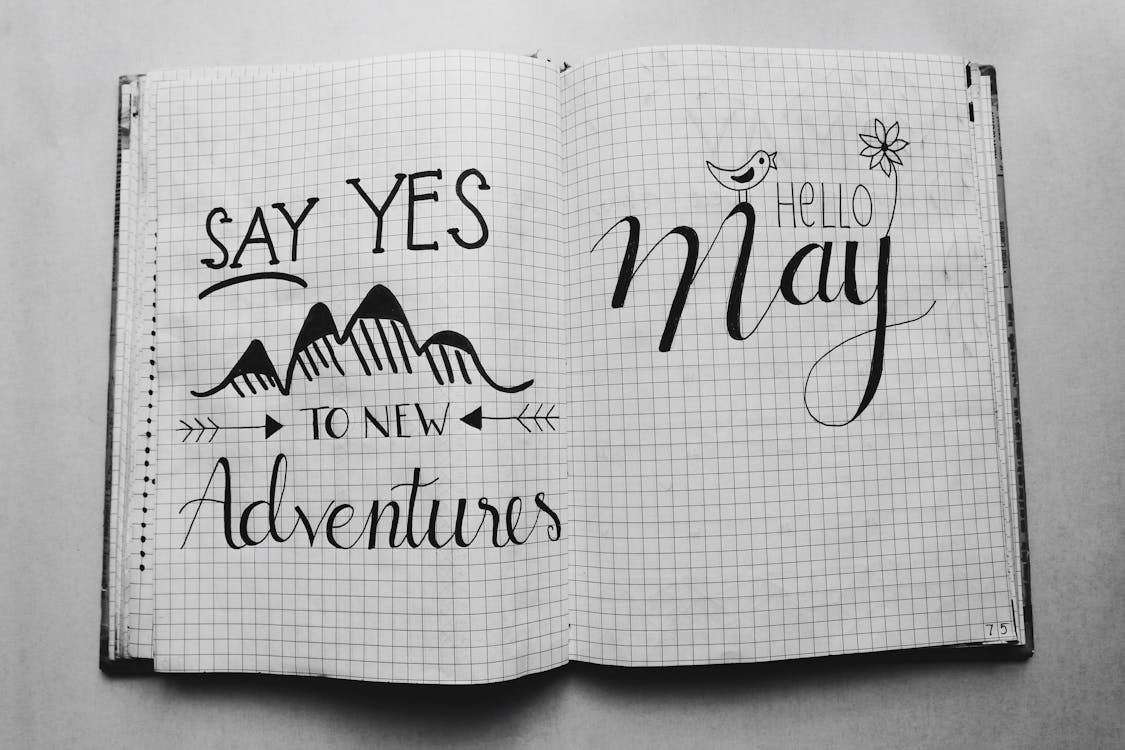 SAY YES
TO NEW
Adventures
HELLO
May
75